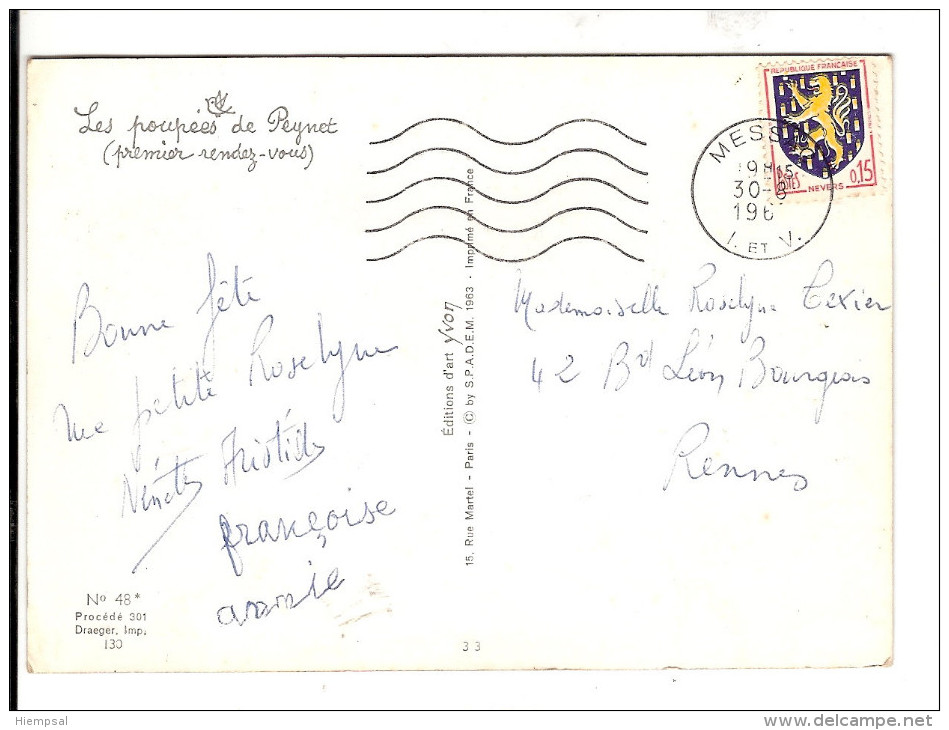 Les poupées de Peynet
(premier rendez-vous)
Bonne fête
ma petite Roselyne
Aristide
françoise
annie
No 48*
Procédé 301
Draeger, Imp.
130
Éditions d'art yvon
15, Rue Martel - Paris - © by S.P.A.D.E.M. 1963 - Imprimé en France
33
REPUBLIQUE FRANÇAISE
POSTES
0,15
NEVERS
19H15
30-8
196
I. ET V.
Mademoiselle Roselyne Texier
42 Bd Léon Bourgeois
Rennes
Hiempsal
www.delcampe.net